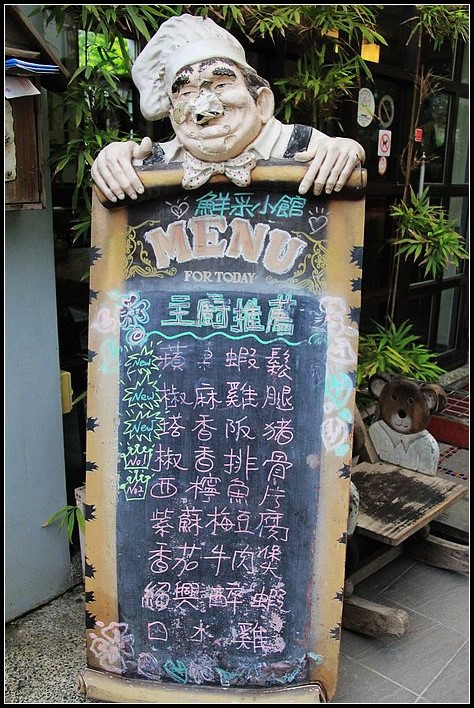 鮮采小館
MENU
FOR TODAY
主廚推薦
New 蝦鬆
New 椒麻雞腿
New 塔香阪豬
No1 椒香排骨
No2 西檸魚片
紫蘇梅豆腐
香茄牛肉煲
紹興醉蝦
口水雞